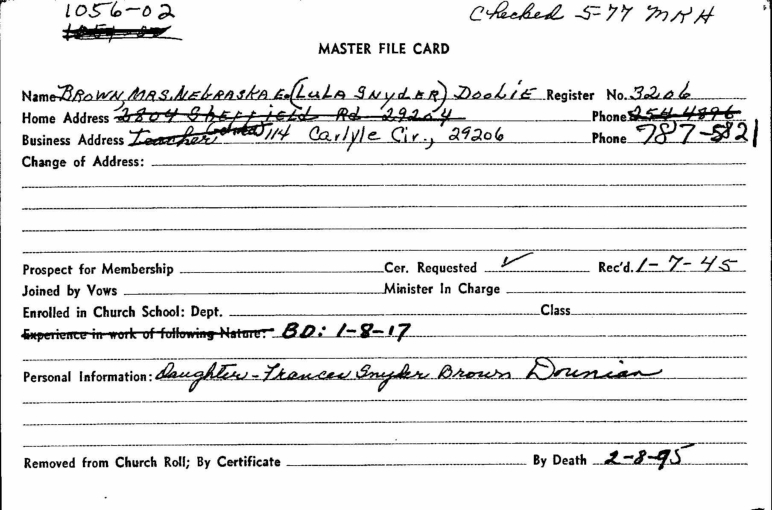 1056-02
Checked 5-77 MRH
MASTER FILE CARD
Name BROWN, MRS. NEBRASKA E. (LULA SNYDER) DOOLIE Register No. 3206
Home Address 2804 SHEFFIELD Rd 29204 Phone 254-4896
Business Address Teacher 114 Carlyle Cir., 29206 Phone 787-5821
Change of Address:
Prospect for Membership Cer. Requested ✓ Rec'd. 1-7-45
Joined by Vows Minister In Charge
Enrolled in Church School: Dept. Class
Experience in work of following Nature: BD: 1-8-17
Personal Information: Daughter - Frances Snyder Brown Dounian
Removed from Church Roll; By Certificate By Death 2-8-95